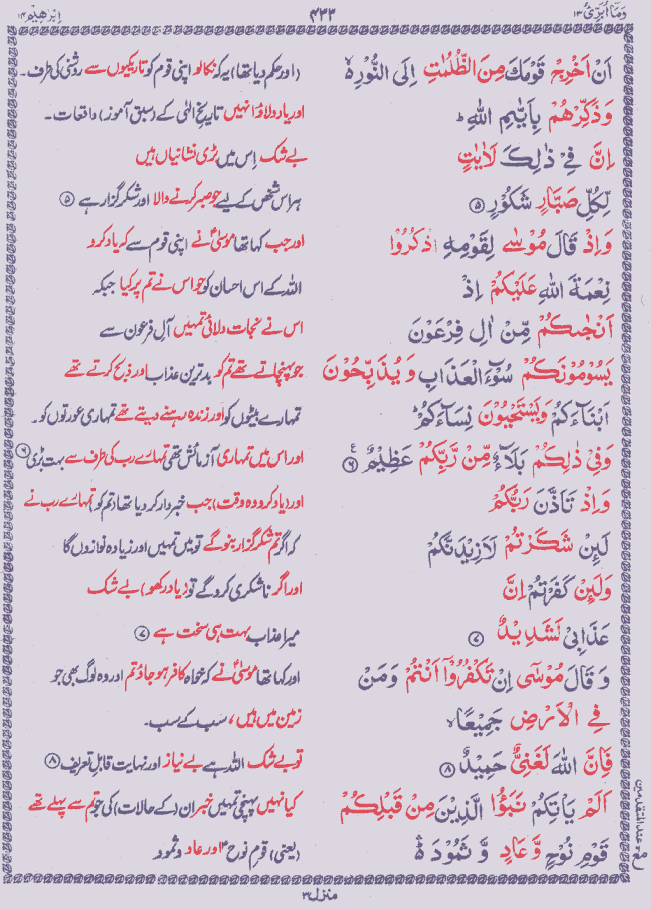 وَمَآ اُبَرِّئُ ۱۳
۴۳۳
اِبْرٰهِيْم ۱۴
اَنْ اَخْرِجْ قَوْمَكَ مِنَ الظُّلُمٰتِ اِلَى النُّوْرِ ۙ
(اور حکم دیا تھا) یہ کہ نکالو اپنی قوم کو تاریکیوں سے روشنی کی طرف۔
وَذَكِّرْهُمْ بِاَيّٰىمِ اللّٰهِ ؕ
اور یاد دلاؤ انہیں تاریخ الٰہی کے (سبق آموز) واقعات۔
اِنَّ فِيْ ذٰلِكَ لَاٰيٰتٍ
بے شک اس میں بڑی نشانیاں ہیں
لِّكُلِّ صَبَّارٍ شَكُوْرٍ ۵
ہر اس شخص کے لیے جو صبر کرنے والا اور شکر گزار ہے ۵
وَاِذْ قَالَ مُوْسٰى لِقَوْمِهِ اذْكُرُوْا
اور جب کہا تھا موسیٰؑ نے اپنی قوم سے کہ یاد کرو
نِعْمَةَ اللّٰهِ عَلَيْكُمْ اِذْ
اللہ کے اس احسان کو جو اس نے تم پر کیا جبکہ
اَنْجٰىكُمْ مِّنْ اٰلِ فِرْعَوْنَ
اس نے نجات دلائی تمہیں آلِ فرعون سے
يَسُوْمُوْنَكُمْ سُوْٓءَ الْعَذَابِ وَيُذَبِّحُوْنَ
جو پہنچاتے تھے تم کو بدترین عذاب اور ذبح کرتے تھے
اَبْنَآءَكُمْ وَيَسْتَحْيُوْنَ نِسَآءَكُمْ ؕ
تمہارے بیٹوں کو اور زندہ رہنے دیتے تھے تمہاری عورتوں کو۔
وَفِيْ ذٰلِكُمْ بَلَآءٌ مِّنْ رَّبِّكُمْ عَظِيْمٌ ۶ ع
اور اس میں تمہاری آزمائش تھی تمہارے رب کی طرف سے بہت بڑی ۶
وَاِذْ تَاَذَّنَ رَبُّكُمْ
اور (یاد کرو وہ وقت) جب خبردار کر دیا تھا (تم کو) تمہارے رب نے
لَئِنْ شَكَرْتُمْ لَاَزِيْدَنَّكُمْ
کہ اگر تم شکر گزار بنو گے تو میں تمہیں اور زیادہ نوازوں گا
وَلَئِنْ كَفَرْتُمْ اِنَّ
اور اگر ناشکری کرو گے تو (یاد رکھو) بے شک
عَذَابِيْ لَشَدِيْدٌ ۷
میرا عذاب بہت ہی سخت ہے ۷
وَقَالَ مُوْسٰٓى اِنْ تَكْفُرُوْٓا اَنْتُمْ وَمَنْ
اور کہا تھا موسیٰؑ نے کہ خواہ کافر ہو جاؤ تم اور وہ لوگ بھی جو
فِي الْاَرْضِ جَمِيْعًا ۙ
زمین میں ہیں، سب کے سب۔
فَاِنَّ اللّٰهَ لَغَنِيٌّ حَمِيْدٌ ۸
تو بے شک اللہ ہے بے نیاز اور نہایت قابلِ تعریف ۸
اَلَمْ يَاْتِكُمْ نَبَؤُا الَّذِيْنَ مِنْ قَبْلِكُمْ
کیا نہیں پہنچی تمہیں خبر ان (کے حالات) کی جو تم سے پہلے تھے
قَوْمِ نُوْحٍ وَّعَادٍ وَّثَمُوْدَ ۛ
(یعنی) قوم نوحؑ اور عاد و ثمود
مع عند المتقدمین
منزل ۳